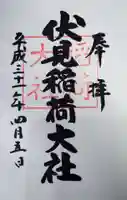 奉拝
伏見稲荷大社
平成三十一年四月五日